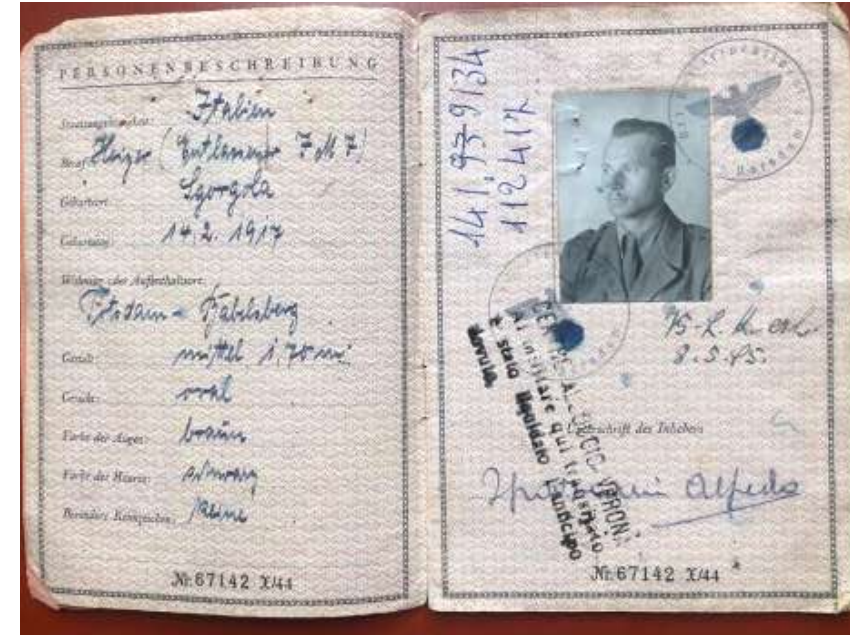 PERSONENBESCHREIBUNG
Staatsangehörigkeit: Italien
Beruf: Heizer (Entlassener 7 M 7)
Geburtsort: Sgorgola
Geburtstag: 14.2.1917
Wohnort oder Aufenthaltsort:
Potsdam - Babelsberg
Gestalt: mittel 1,70 m
Gesicht: oval
Farbe der Augen: braun
Farbe der Haare: schwarz
Besondere Kennzeichen: Keine
Nr. 67142 X/44
141.979/34
112417
8.5.45.
VERONA
Al militare qui trascritto
è stato liquidato l'anticipo
dovuto
Unterschrift des Inhabers
Alfredo
Nr. 67142 X/44